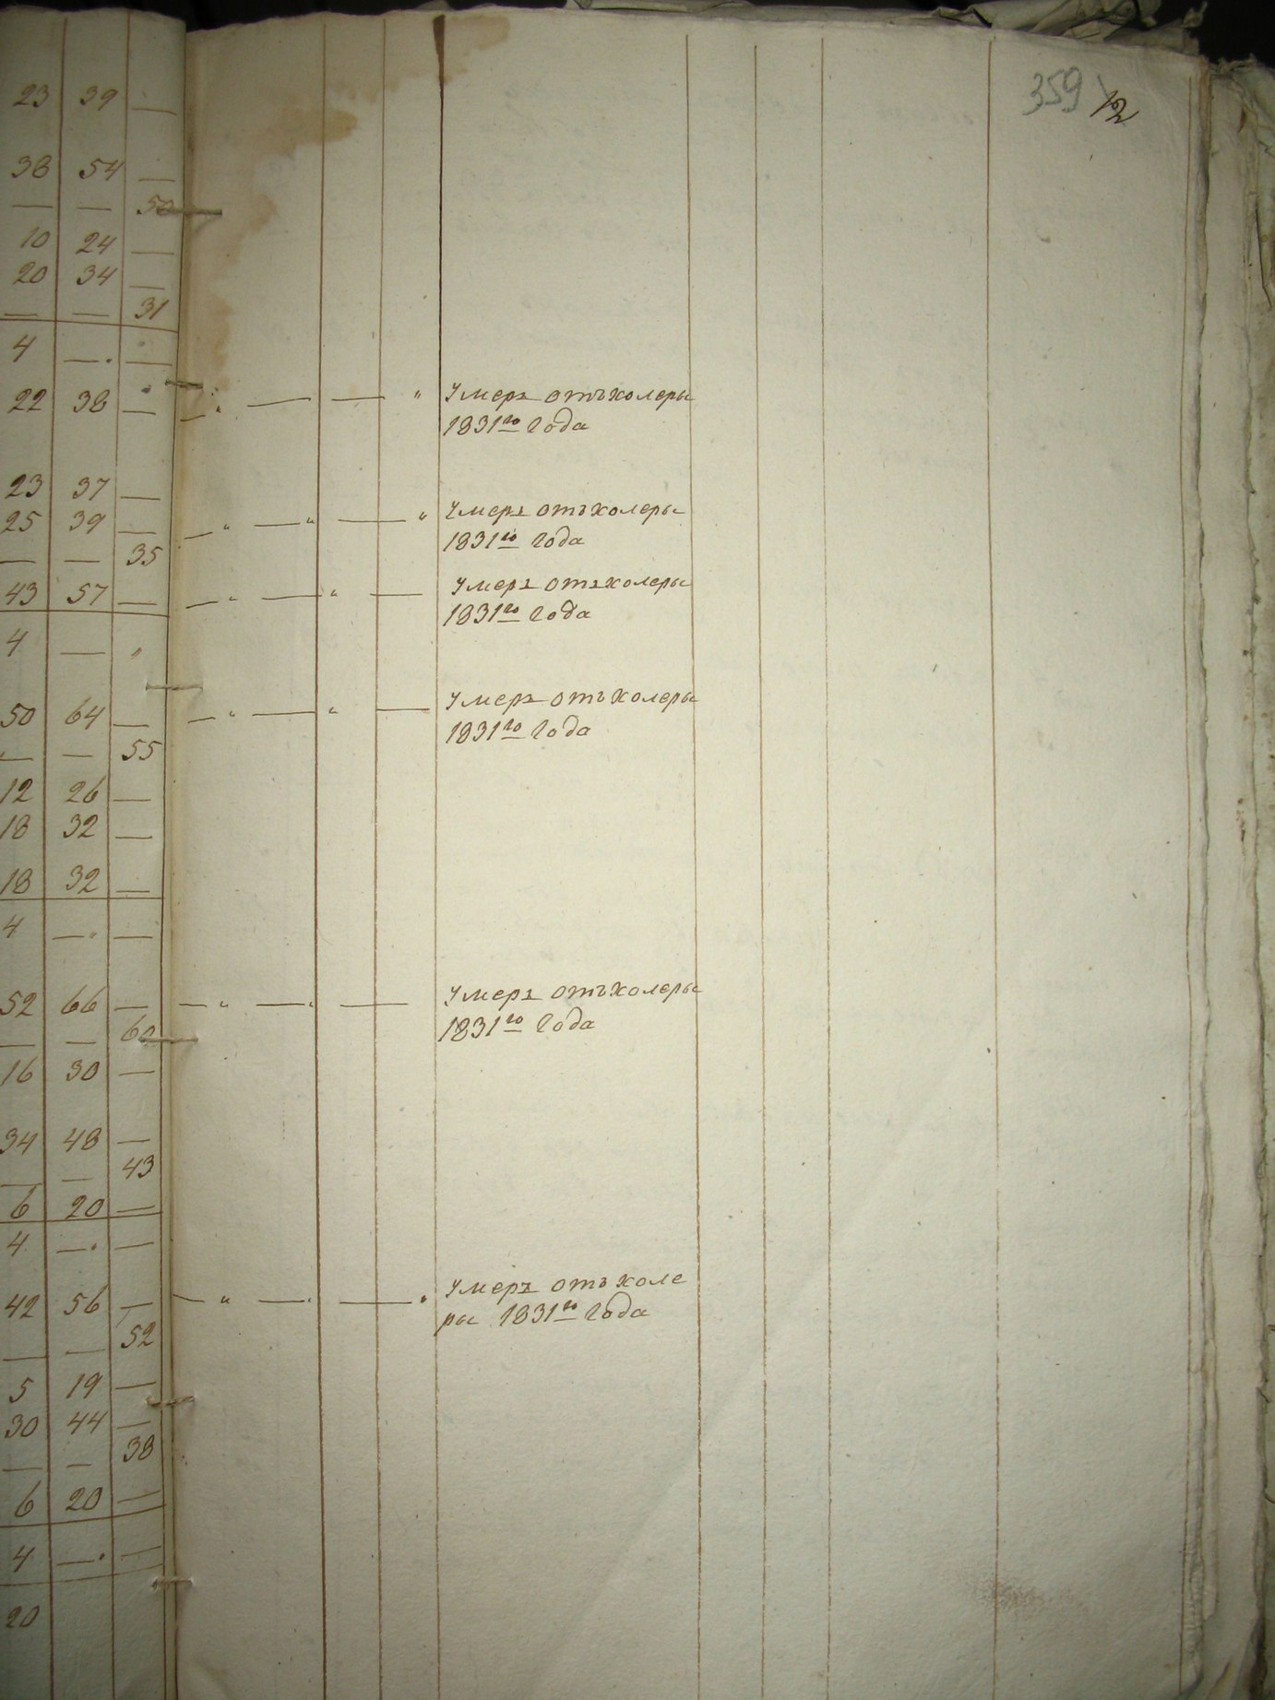 359 12
23 39 —
38 54 —
— — 50
10 24 —
20 34 —
— — 31
4 — —
22 38 —
23 37 —
25 39 —
— — 35
43 57 —
4 —
50 64 —
— — 55
12 26 —
18 32 —
18 32 —
4 — —
52 66 —
— — 60
16 30 —
34 48 —
— — 43
6 20 —
4 — —
42 56 —
— — 52
5 19 —
30 44 —
— — 38
6 20 —
4 — —
20
Умеръ отъ холеры
1831го года
Умеръ отъ холеры
1831го года
Умеръ отъ холеры
1831го года
Умеръ отъ холеры
1831го года
Умеръ отъ холеры
1831го года
Умеръ отъ холе
ры 1831го года